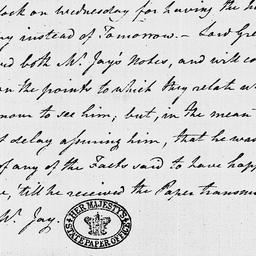 lock on Wednesday for having the h
ay instead of Tomorrow. – Lord Gre
ed both Mr. Jay's Notes, and will co
on the points to which they relate w
nour to see him; but, in the mean
t delay assuring him, that he was
of any of the Facts said to have happ
e, 'till he received the Paper transm
Mr. Jay.
HER MAJESTY'S
STATE PAPER OFFICE